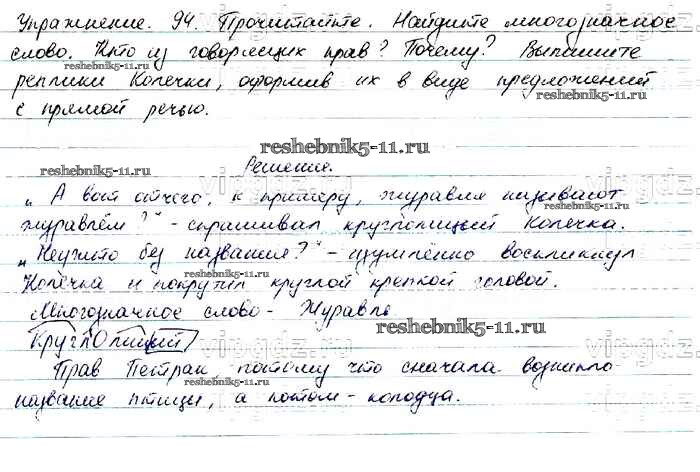 Упражнение. 94. Прочитайте. Найдите многозначное
слово. Кто из говорящих прав? Почему? Выпишите
reshebnik5-11.ru
реплики Копечки, оформив их в виде предложений
reshebnik5-11.ru
с прямой речью.
reshebnik5-11.ru
Решение.
reshebnik5-11.ru
„А вот отчего, к примеру, журавля называют
журавлём?“ - спрашивал круглолицый Копечка.
„Неужто без названия?“ - изумлённо воскликнул
Копечка и покрутил круглой крепкой головой.
Многозначное слово - Журавль.
reshebnik5-11.ru
КруглОлицый
Прав Петран потому что сначала возникло
reshebnik5-11.ru
название птицы, а потом - колодца.